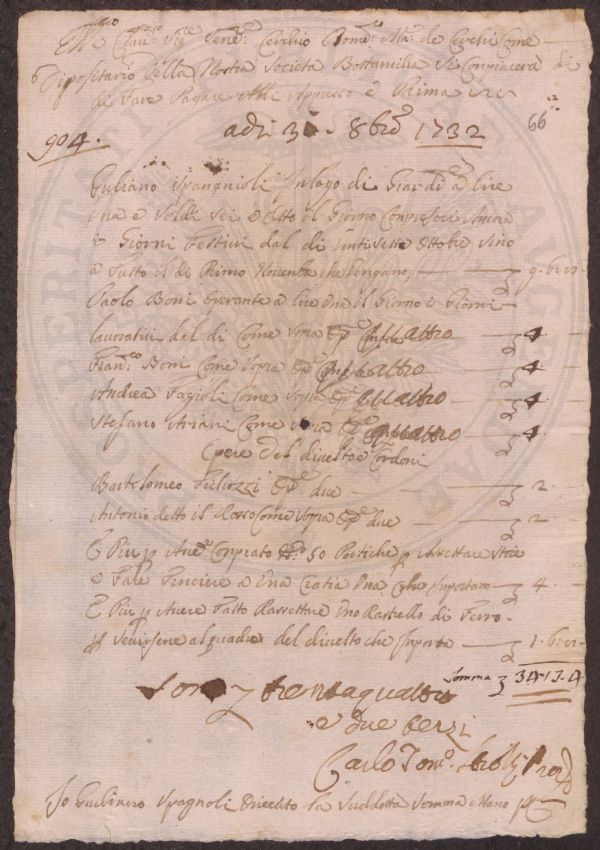 Ill.mo Clar.mo Sig.re Sen.re Cerchio Dom.co M.a de Cerchi Come
Dipositario della Nostra Societa Bottanilia Si Conpiacera di
di Fare Pagare Alli Appresso e Prima
66
adi 3 - 8bre 1732
904.
Guliano Spagnioli In luogo di Giardi.re a lire
Una e Soldi Sei e detto il Giorno Conpresoci Ancora
i Giorni Festivi dal di Vintisette Ottobre sino
a Tutto il di Primo Novenbre che Vengano 9.6:8
Paolo Boni Operante a lire Una il Giorno e Giorni
lavorativi dal di Come Sopra Op.e quattro 4
Fran.co Boni Come Sopra Op.e quattro 4
Andrea Fagioli Come Sopra Op.e quattro 4
Stefano Ariani Come Sopra Op.e quattro 4
Opere del divelto e Cordoni
Bartolomeo Figliozzi Op.e due 2
Antonio detto il Rosso Come Sopra Op.e due 2
E Piu p Aver Conprato 50 Pertiche p Assettare Stoie
e Fare Pinciere a Una Cratia Una Che Inportano 4
E Piu p Avere Fatto Rassettare Uno Rastrello di Ferro
p Servirsene al quadro del divelto che Inporta 1.6:8
Somma 34.13.4
Sono trentaquattro
e due terzi
Carlo Tom.o
Io Guliano Spagnoli O ricevuto la Suddetta Somma Mano pp